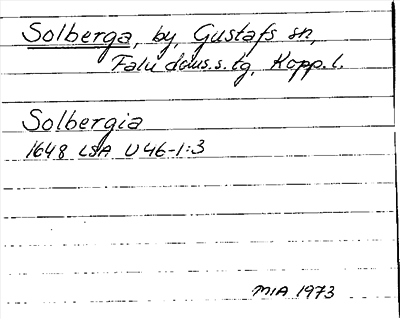 Solberga, by, Gustafs sn,
Falu doms.s. tg, Kopp.l.
Solbergia
1648 LSA U46-1:3
MIA 1973